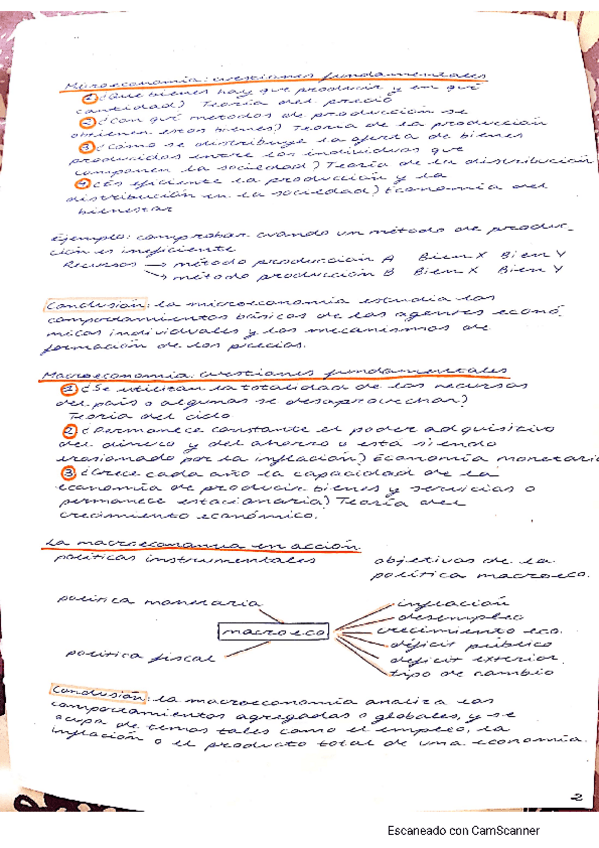 Microeconomía: cuestiones fundamentales
1 ¿Qué bienes hay que producir y en qué
cantidad? Teoría del precio
2 ¿Con qué métodos de producción se
obtienen estos bienes? Teoría de la producción
3 ¿Cómo se distribuye la oferta de bienes
producidos entre los individuos que
componen la sociedad? Teoría de la distribución
4 ¿Es eficiente la producción y la
distribución en la sociedad? Economía del
bienestar
Ejemplo: comprobar cuando un método de produc-
ción es ineficiente
Recursos → método producción A Bien X Bien Y
→ método producción B Bien X Bien Y
Conclusión: la microeconomía estudia los
comportamientos básicos de los agentes econó
micos individuales y los mecanismos de
formación de los precios.
Macroeconomía: cuestiones fundamentales
1 ¿Se utilizan la totalidad de los recursos
del país o algunos se desaprovechan?
Teoría del ciclo
2 ¿Permanece constante el poder adquisitivo
del dinero y del ahorro o está siendo
erosionado por la inflación? Economía monetaria
3 ¿Crece cada año la capacidad de la
economía de producir bienes y servicios o
permanece estacionaria? Teoría del
crecimiento económico.
La macroeconomía en acción
políticas instrumentales objetivos de la
política macroeco.
política monetaria inflación
desempleo
macroeco crecimiento eco.
déficit público
política fiscal déficit exterior
tipo de cambio
Conclusión: la macroeconomía analiza los
comportamientos agregados o globales, y se
ocupa de temas tales como el empleo, la
inflación o el producto total de una economía.
2
Escaneado con CamScanner